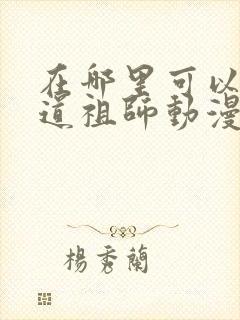 在哪里可以
道祖師動漫
楊秀蘭